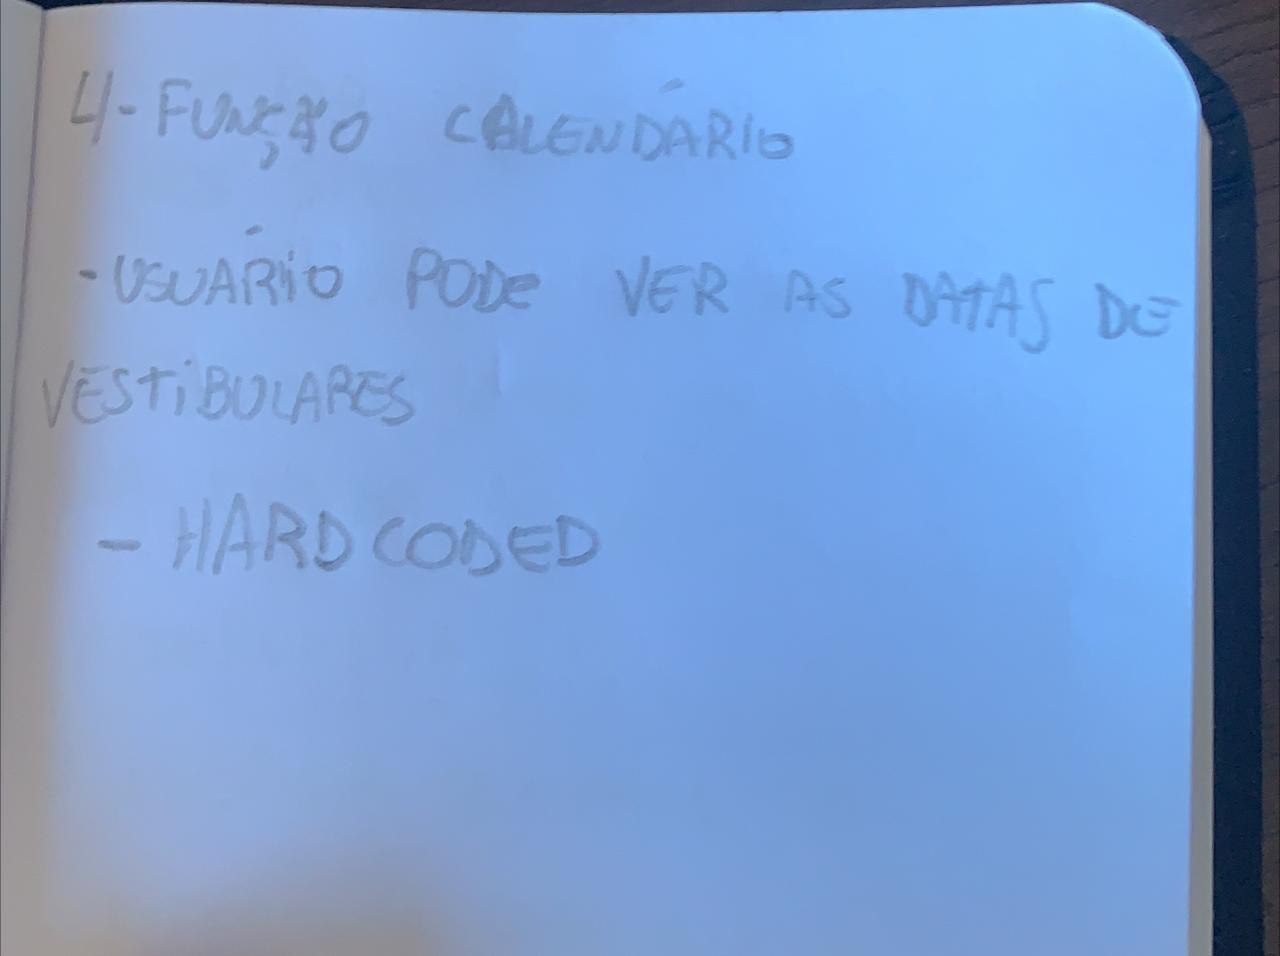 4- FUNÇÃO CALENDÁRIO
- USUÁRIO PODE VER AS DATAS DE
VESTIBULARES
- HARDCODED